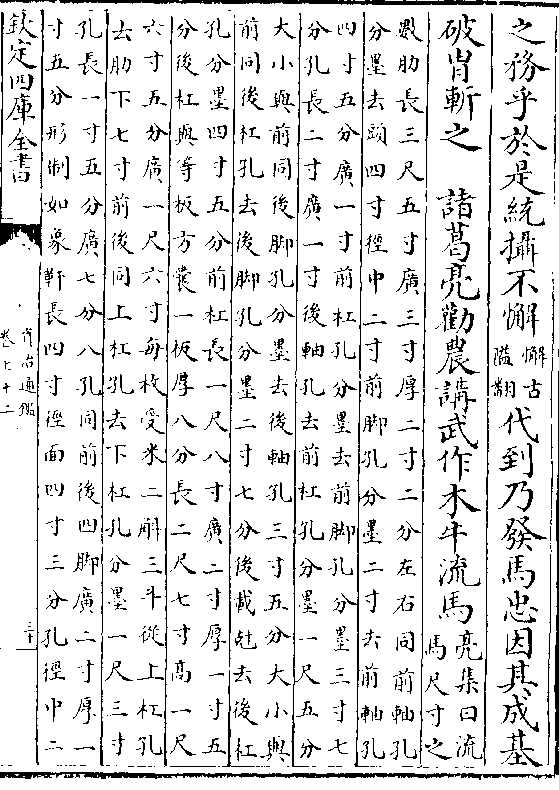 之務乎於是統攝不懈懈古隘翻代到乃發馬忠因其成基
破胄斬之　諸葛亮勸農講武作木牛流馬亮集曰流馬尺寸之
數肋長三尺五寸廣三寸厚二寸二分左右同前軸孔
分墨去頭四寸徑中二寸前脚孔分墨二寸去前軸孔
四寸五分廣一寸前杠孔去前脚孔分墨三寸七
分孔長二寸廣一寸後軸孔去前杠孔分墨一尺五分
大小與前同後脚孔分墨去後軸孔三寸五分大小與
前同後杠孔去後脚孔分墨二寸七分後載尅去後杠
孔分墨四寸五分前杠長一尺八寸廣二寸厚一寸五
分後杠與等板方囊一板厚八分長二尺七寸高一尺
六寸五分廣一尺六寸每枚受米二斛三斗從上杠孔
去肋下七寸前後同上杠孔去下杠孔分墨一尺三寸
孔長一寸五分廣七分八孔同前後四脚廣二寸厚一
寸五分形制如象軒長四寸徑面四寸三分孔徑中二
欽定四庫全書
資治通鑑
卷七十二
三十